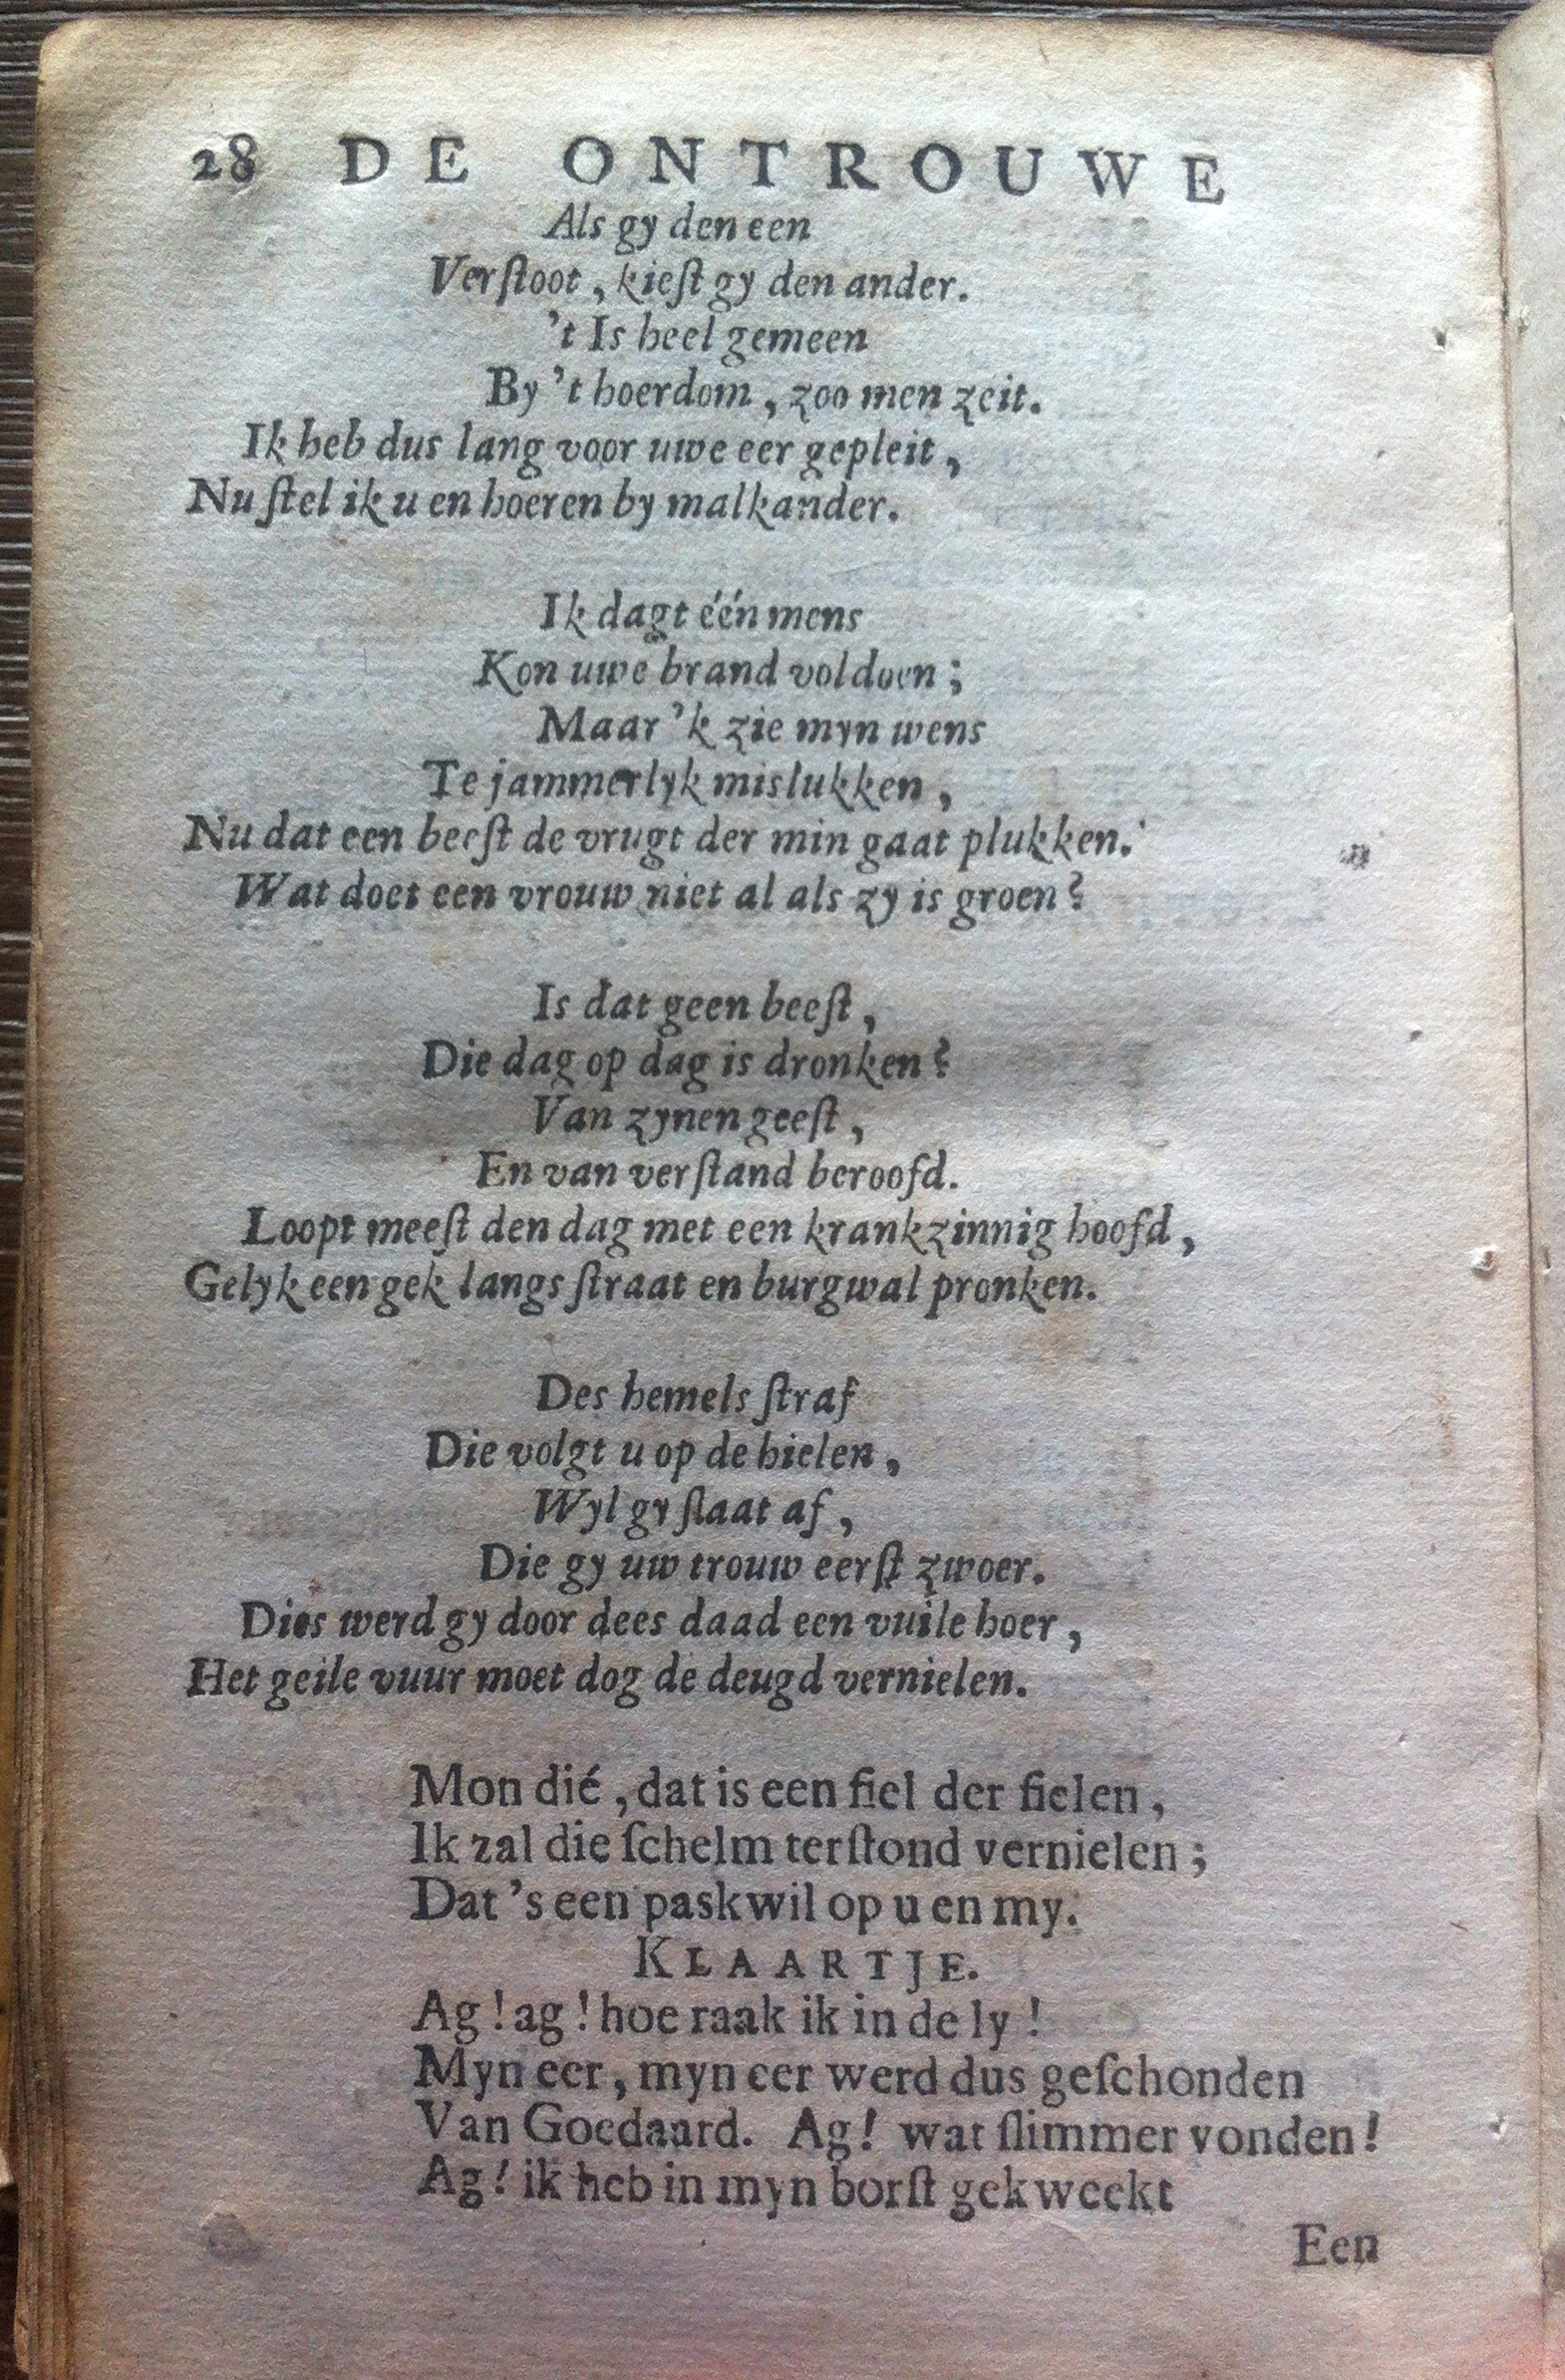 28 DE ONTROUWE
Als gy den een
Verſtoot, kieſt gy den ander.
't Is heel gemeen
By 't hoerdom, zoo men zeit.
Ik heb dus lang voor uwe eer gepleit,
Nu ſtel ik u en hoeren by malkander.
Ik dagt één mens
Kon uwe brand voldoen;
Maar 'k zie myn wens
Te jammerlyk mislukken,
Nu dat een beeſt de vrugt der min gaat plukken.
Wat doet een vrouw niet al als zy is groen?
Is dat geen beeſt,
Die dag op dag is dronken?
Van zynen geeſt,
En van verſtand beroofd.
Loopt meeſt den dag met een krankzinnig hoofd,
Gelyk een gek langs ſtraat en burgwal pronken.
Des hemels ſtraf
Die volgt u op de hielen,
Wyl gy ſlaat af,
Die gy uw trouw eerſt zwoer.
Dies werd gy door dees daad een vuile hoer,
Het geile vuur moet dog de deugd vernielen.
Mon dié, dat is een fiel der fielen,
Ik zal die ſchelm terſtond vernielen;
Dat 's een paskwil op u en my.
KLAARTJE.
Ag! ag! hoe raak ik in de ly!
Myn eer, myn eer werd dus geſchonden
Van Goedaard. Ag! wat ſlimmer vonden!
Ag! ik heb in myn borſt gekweekt
Een